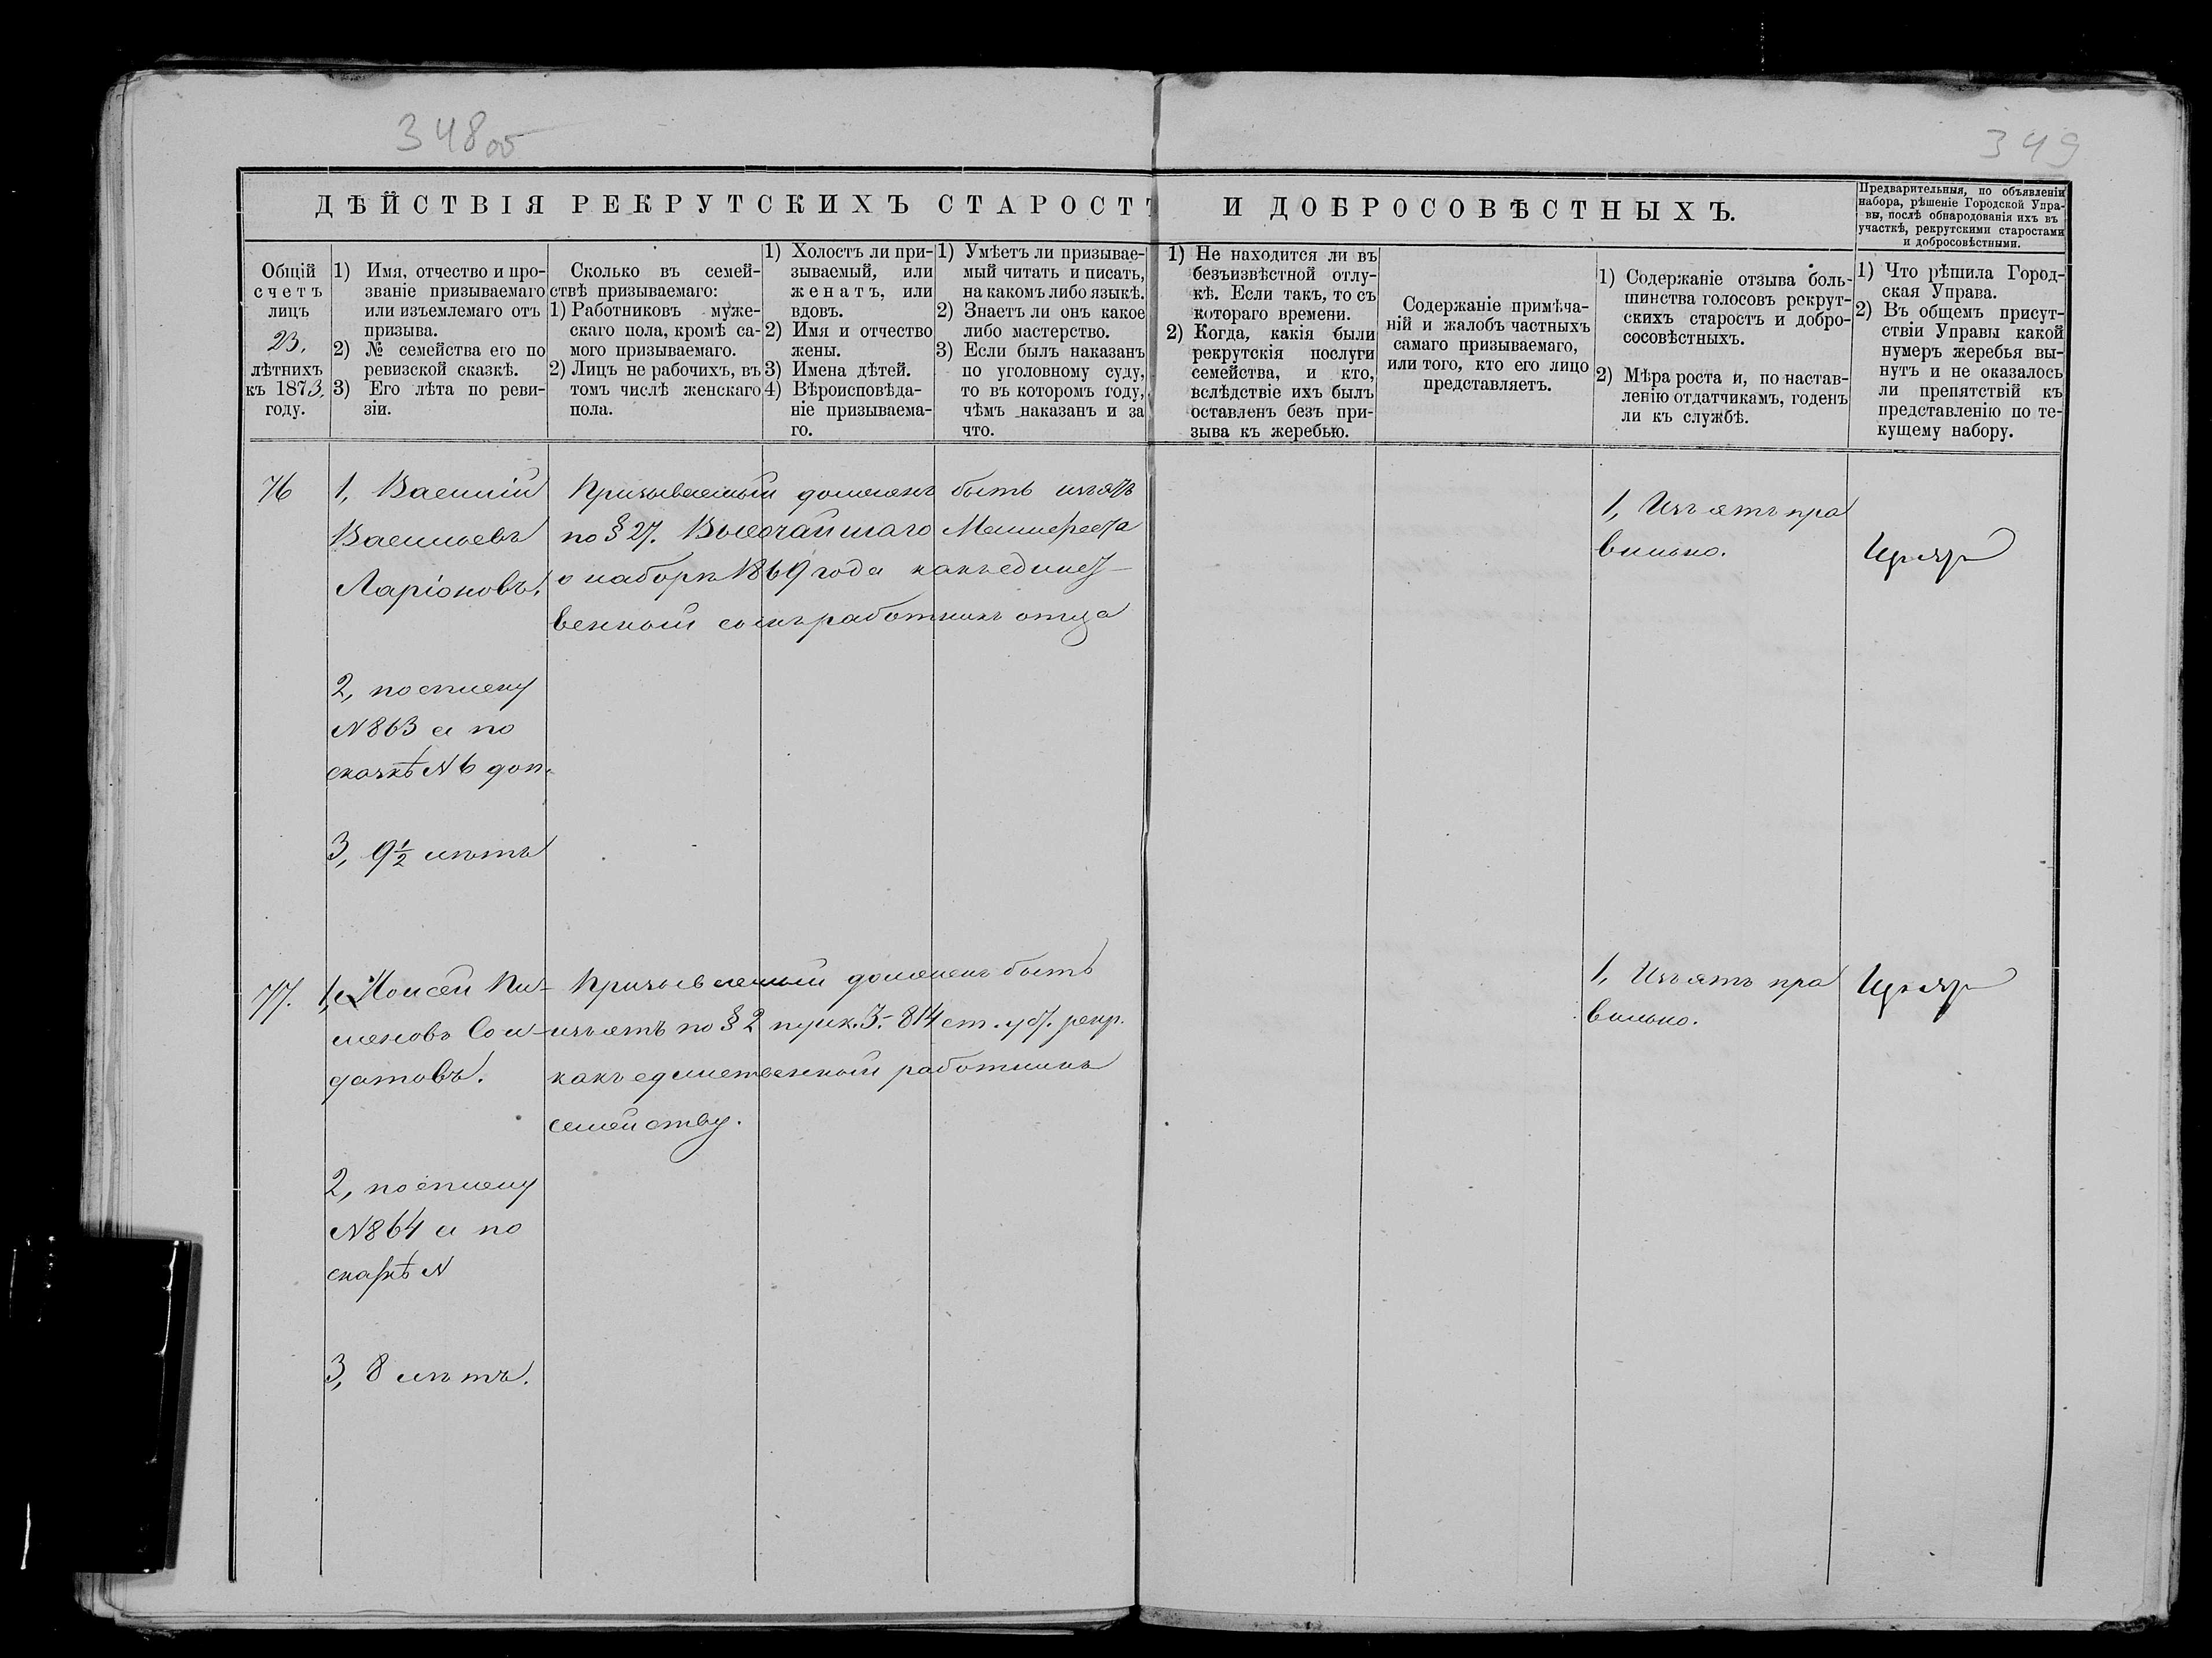 348 об
349
ДѢЙСТВІЯ РЕКРУТСКИХЪ СТАРОСТЪ И ДОБРОСОВѢСТНЫХЪ.
Предварительныя, по объявленіи
набора, рѣшеніе Городской Упра-
вы, послѣ обнародованія ихъ въ
участкѣ, рекрутскими старостами
и добросовѣстными.
Общій
счетъ
лицъ
23.
лѣтнихъ
къ 1873.
году.
1) Имя, отчество и про-
званіе призываемаго
или изъемлемаго отъ
призыва.
2) № семейства его по
ревизской сказкѣ.
3) Его лѣта по реви-
зіи.
Сколько въ семей-
ствѣ призываемаго:
1) Работниковъ муже-
скаго пола, кромѣ са-
мого призываемаго.
2) Лицъ не рабочихъ, въ
томъ числѣ женскаго
пола.
1) Холостъ ли при-
зываемый, или
женатъ, или
вдовъ.
2) Имя и отчество
жены.
3) Имена дѣтей.
4) Вѣроисповѣда-
ніе призываема-
го.
1) Умѣетъ ли призывае-
мый читать и писать,
на какомъ либо языкѣ.
2) Знаетъ ли онъ какое
либо мастерство.
3) Если былъ наказанъ
по уголовному суду,
то въ которомъ году,
чѣмъ наказанъ и за
что.
1) Не находится ли въ
безъизвѣстной отлу-
кѣ. Если такъ, то съ
котораго времени.
2) Когда, какія были
рекрутскія послуги
семейства, и кто,
вслѣдствіе ихъ былъ
оставленъ безъ при-
зыва къ жеребью.
Содержаніе примѣча-
ній и жалобъ частныхъ
самаго призываемаго,
или того, кто его лицо
представляетъ.
1) Содержаніе отзыва боль-
шинства голосовъ рекрут-
скихъ старостъ и добро-
сосовѣстныхъ.
2) Мѣра роста и, по настав-
ленію отдатчикамъ, годенъ
ли къ службѣ.
1) Что рѣшила Город-
ская Управа.
2) Въ общемъ присут-
ствіи Управы какой
нумеръ жеребья вы-
нутъ и не оказалось
ли препятствій къ
представленію по те-
кущему набору.
76
1, Василій
Васильевъ
Ларіоновъ.
2, по списку
N 863 а по
сказкѣ N 6 доп.
3, 9½ лѣтъ
Призываемый долженъ быть изъятъ
по § 27. Высочайшаго Манифеста
о наборѣ 1869 года какъ единст-
венный сынъ работникъ отца
1, Изъятъ пра
вильно.
77.
1, Моисей Пи-
меновъ Сол-
датовъ.
2, по списку
N 864 а по
сказкѣ N
3, 8 лѣтъ.
Призываемый долженъ быть
изъятъ по § 2 пунк. 3.- 814 ст. уст. рекр.
какъ единственный работникъ
семейству.
1, Изъятъ пра
вильно.